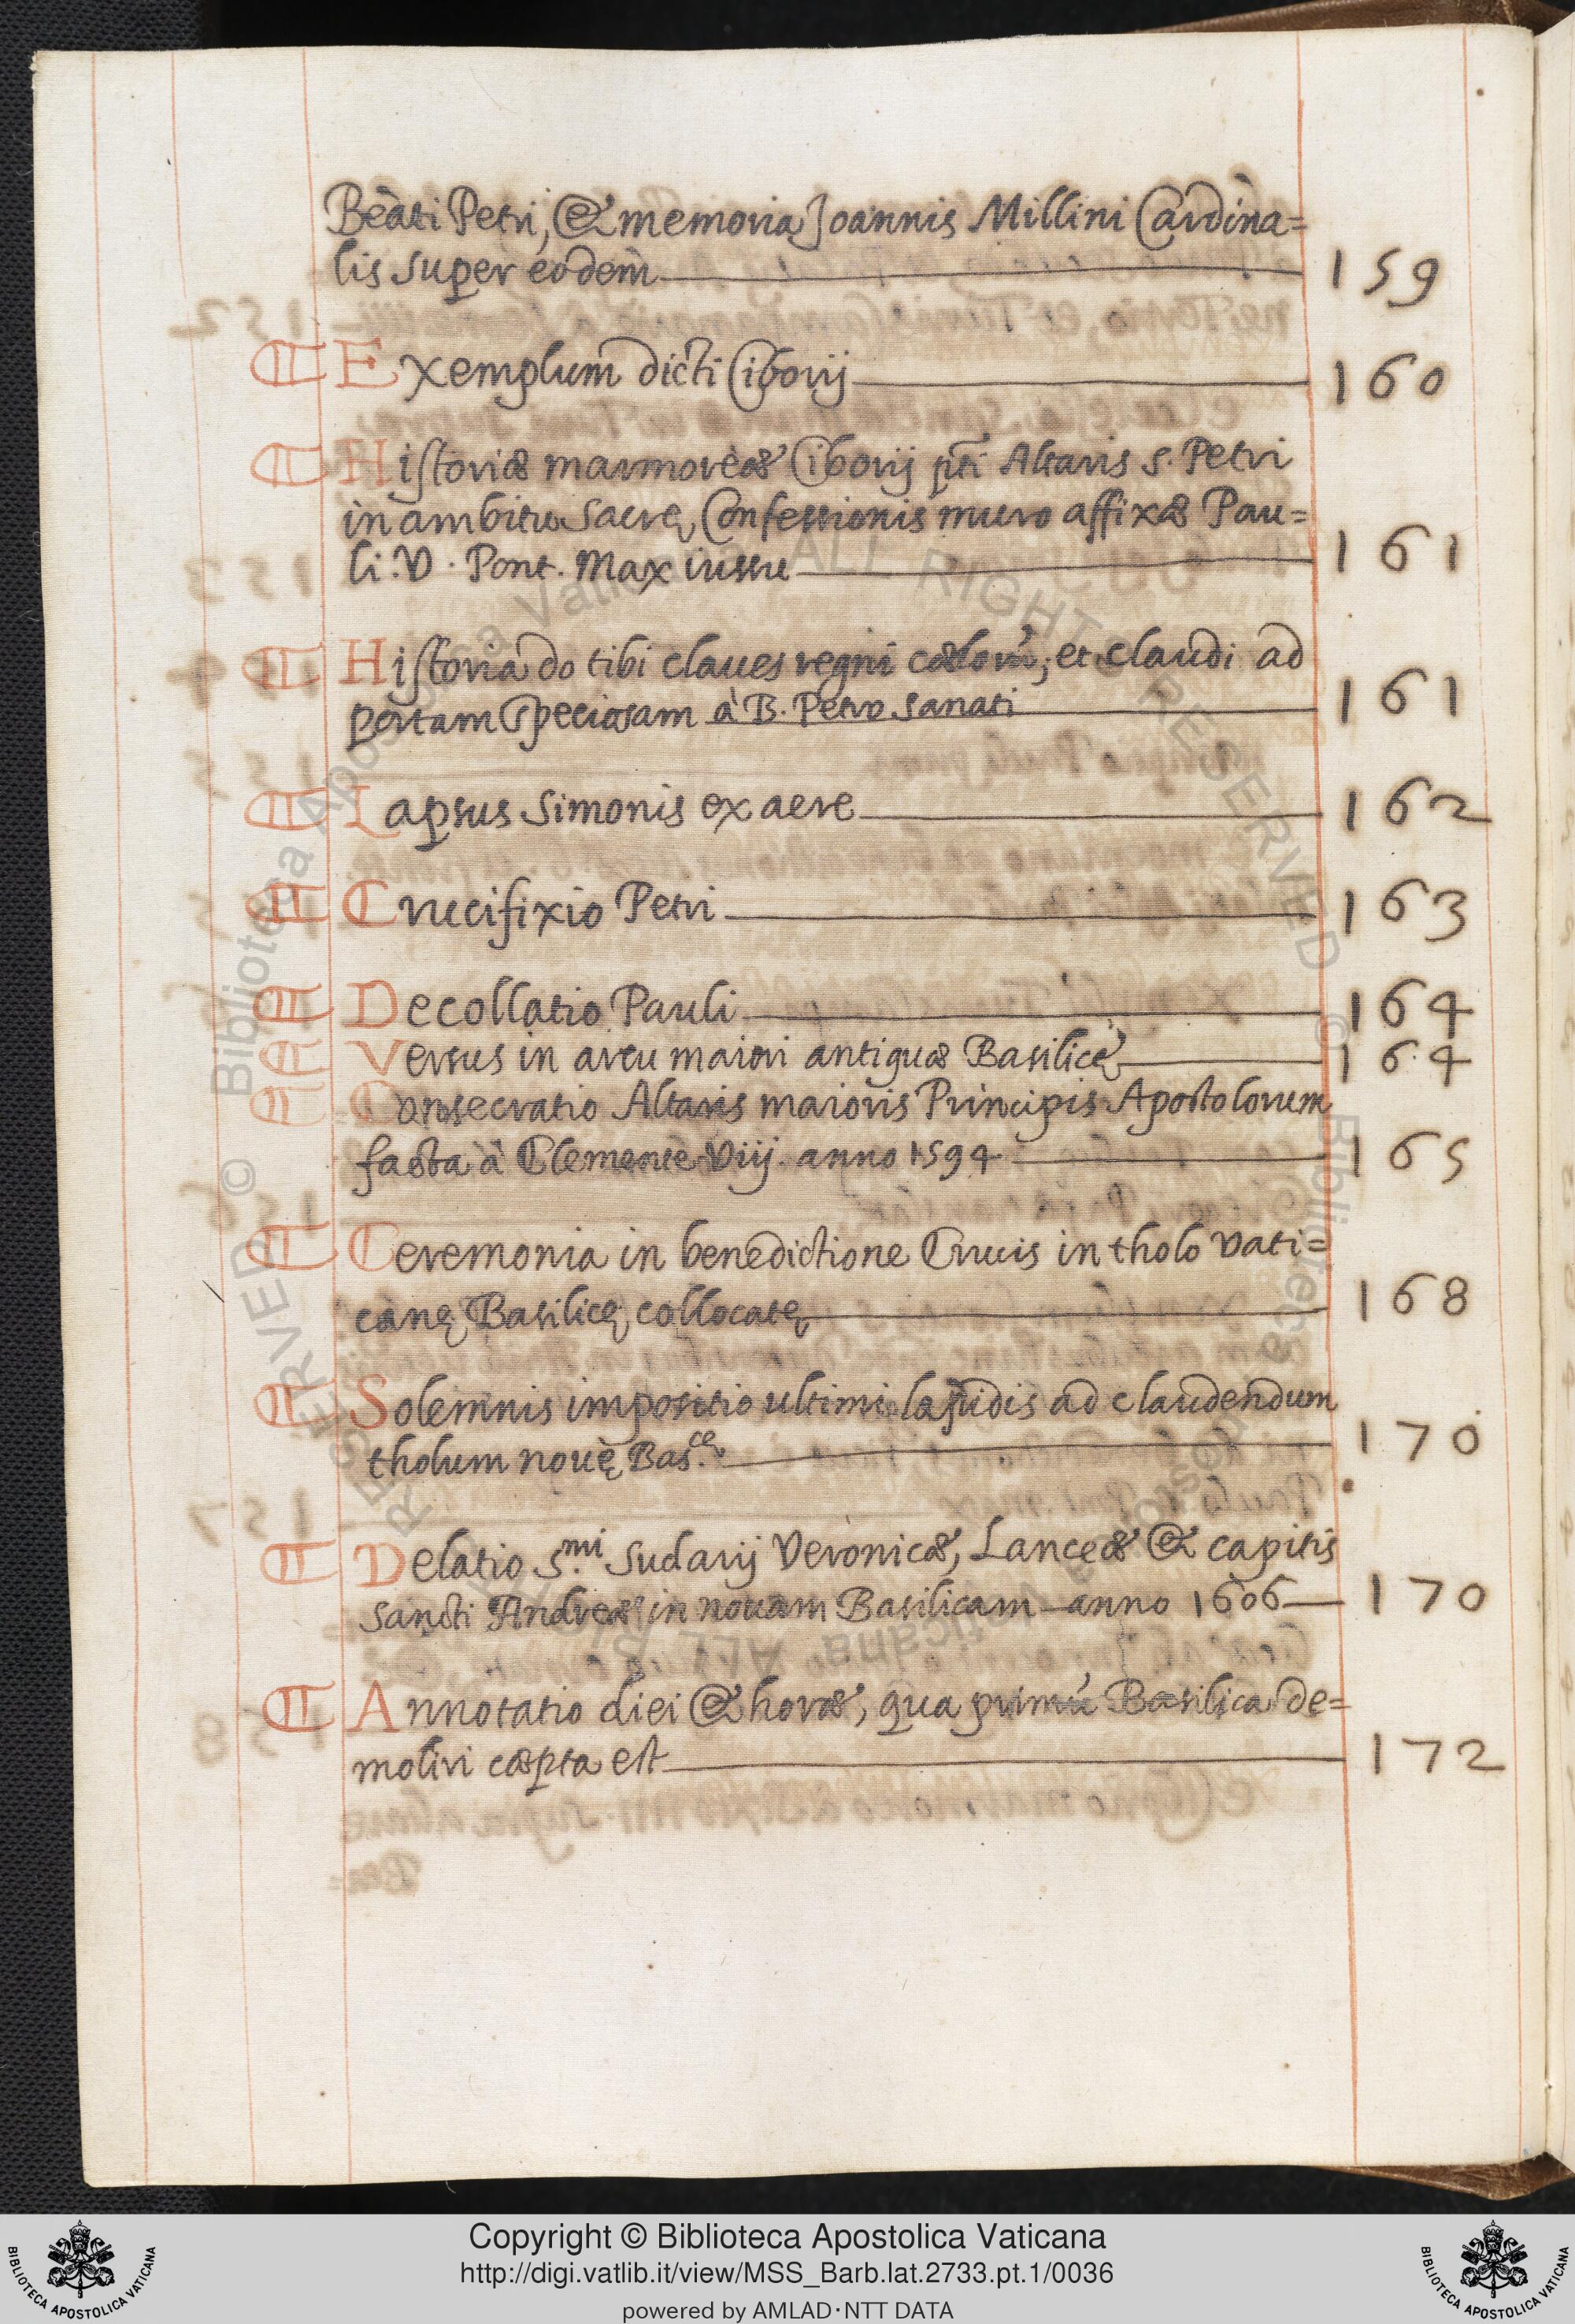 Beati Petri, & memoria Joannis Millini Cardina=
lis super eodem 159
¶ Exemplum dicti Ciborij 160
¶ Historiæ marmoreæ Ciborij pti Altaris S. Petri
in ambitu Sacrę Confessionis muro affixæ Pau=
li. V. Pont. Max iussu 161
¶ Historia do tibi claues regni cælorũ, et claudi ad
portam speciosam à B. Petro sanati 161
¶ Lapsus Simonis ex aere 162
¶ Crucifixio Petri 163
¶ Decollatio Pauli 164
¶ Versus in arcu maiori antiquæ Basilicę 164
¶ Consecratio Altaris maioris Principis Apostolorum
facta à Clemente Viij. anno 1594 165
¶ Ceremonia in benedictione Crucis in tholo vati=
canę Basilicę collocatę 168
¶ Solemnis impositio ultimi lapidis ad claudendum
tholum nouę Bas.cę 170
¶ Delatio S.mi Sudarij Veronicæ, Lanceæ & capitis
Sancti Andreæ in nouam Basilicam anno 1606 170
¶ Annotatio diei & horæ, qua primũ Basilica de=
moliri cæpta est 172
© Biblioteca Apostolica Vaticana ALL RIGHTS RESERVED
© Biblioteca Apostolica Vaticana ALL RIGHTS RESERVED
Copyright © Biblioteca Apostolica Vaticana
http://digi.vatlib.it/view/MSS_Barb.lat.2733.pt.1/0036
powered by AMLAD·NTT DATA
BIBLIOTECA APOSTOLICA VATICANA
BIBLIOTECA APOSTOLICA VATICANA